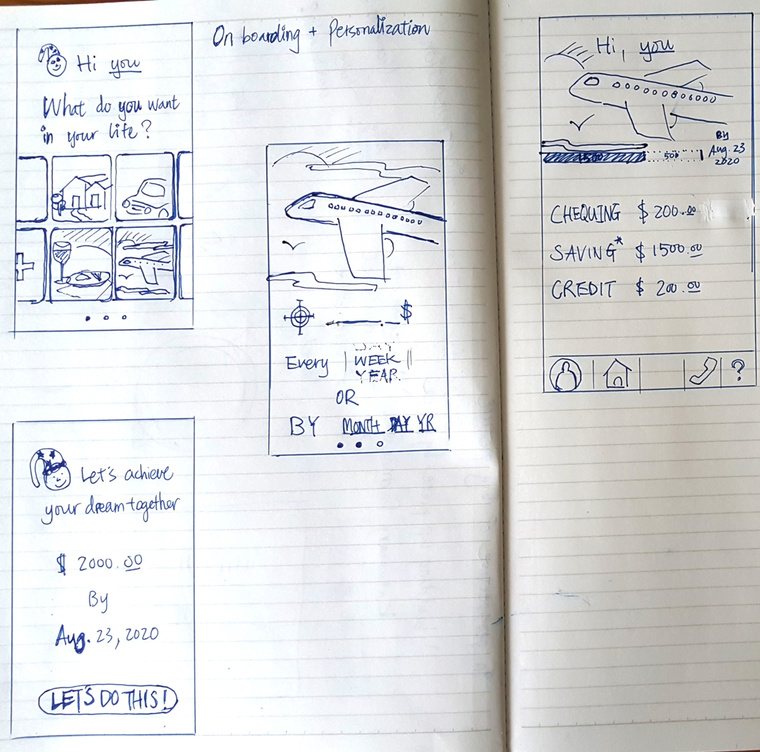 On boarding + Personalization
Hi you
What do you want
in your life?
$
Every
DAY
WEEK
YEAR
OR
BY MONTH DAY YR
Let's achieve
your dream together
$ 2000.00
By
Aug. 23, 2020
LET'S DO THIS!
Hi, you
1500
500
BY
Aug. 23
2020
CHEQUING $ 200.00
SAVING* $ 1500.00
CREDIT $ 200.00
?